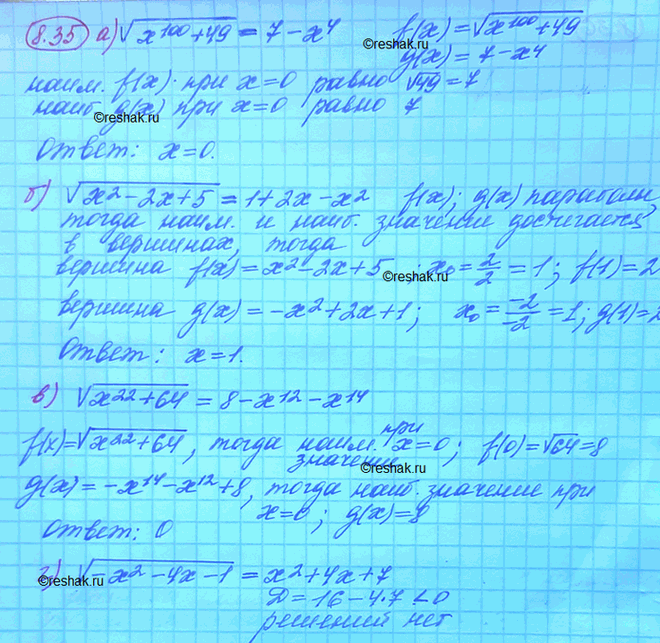 8.35 а) √(x¹⁰⁰+49) = 7-x⁴ f(x)=√(x¹⁰⁰+49)
g(x) = 7-x⁴
©reshak.ru
наим. f(x) при x=0 равно √49=7
наиб g(x) при x=0 равно 7
©reshak.ru
Ответ: x=0.
б) √(x²-2x+5) = 1+2x-x² f(x); g(x) параболы,
тогда наим. и наиб. значение достигается
в вершинах, тогда
вершина f(x)=x²-2x+5; x₀=2/2=1; f(1)=2
©reshak.ru
вершина g(x)=-x²+2x+1; x₀=-2/-2=1; g(1)=2
Ответ: x=1.
в) √(x²²+64) = 8-x¹²-x¹⁴
f(x)=√(x²²+64), тогда наим. значение при x=0; f(0)=√64=8
©reshak.ru
g(x)=-x¹⁴-x¹²+8, тогда наиб. значение при
x=0; g(x)=8
Ответ: 0
г) √(-x²-4x-1) = x²+4x+7
©reshak.ru
D=16-4·7<0
решений нет